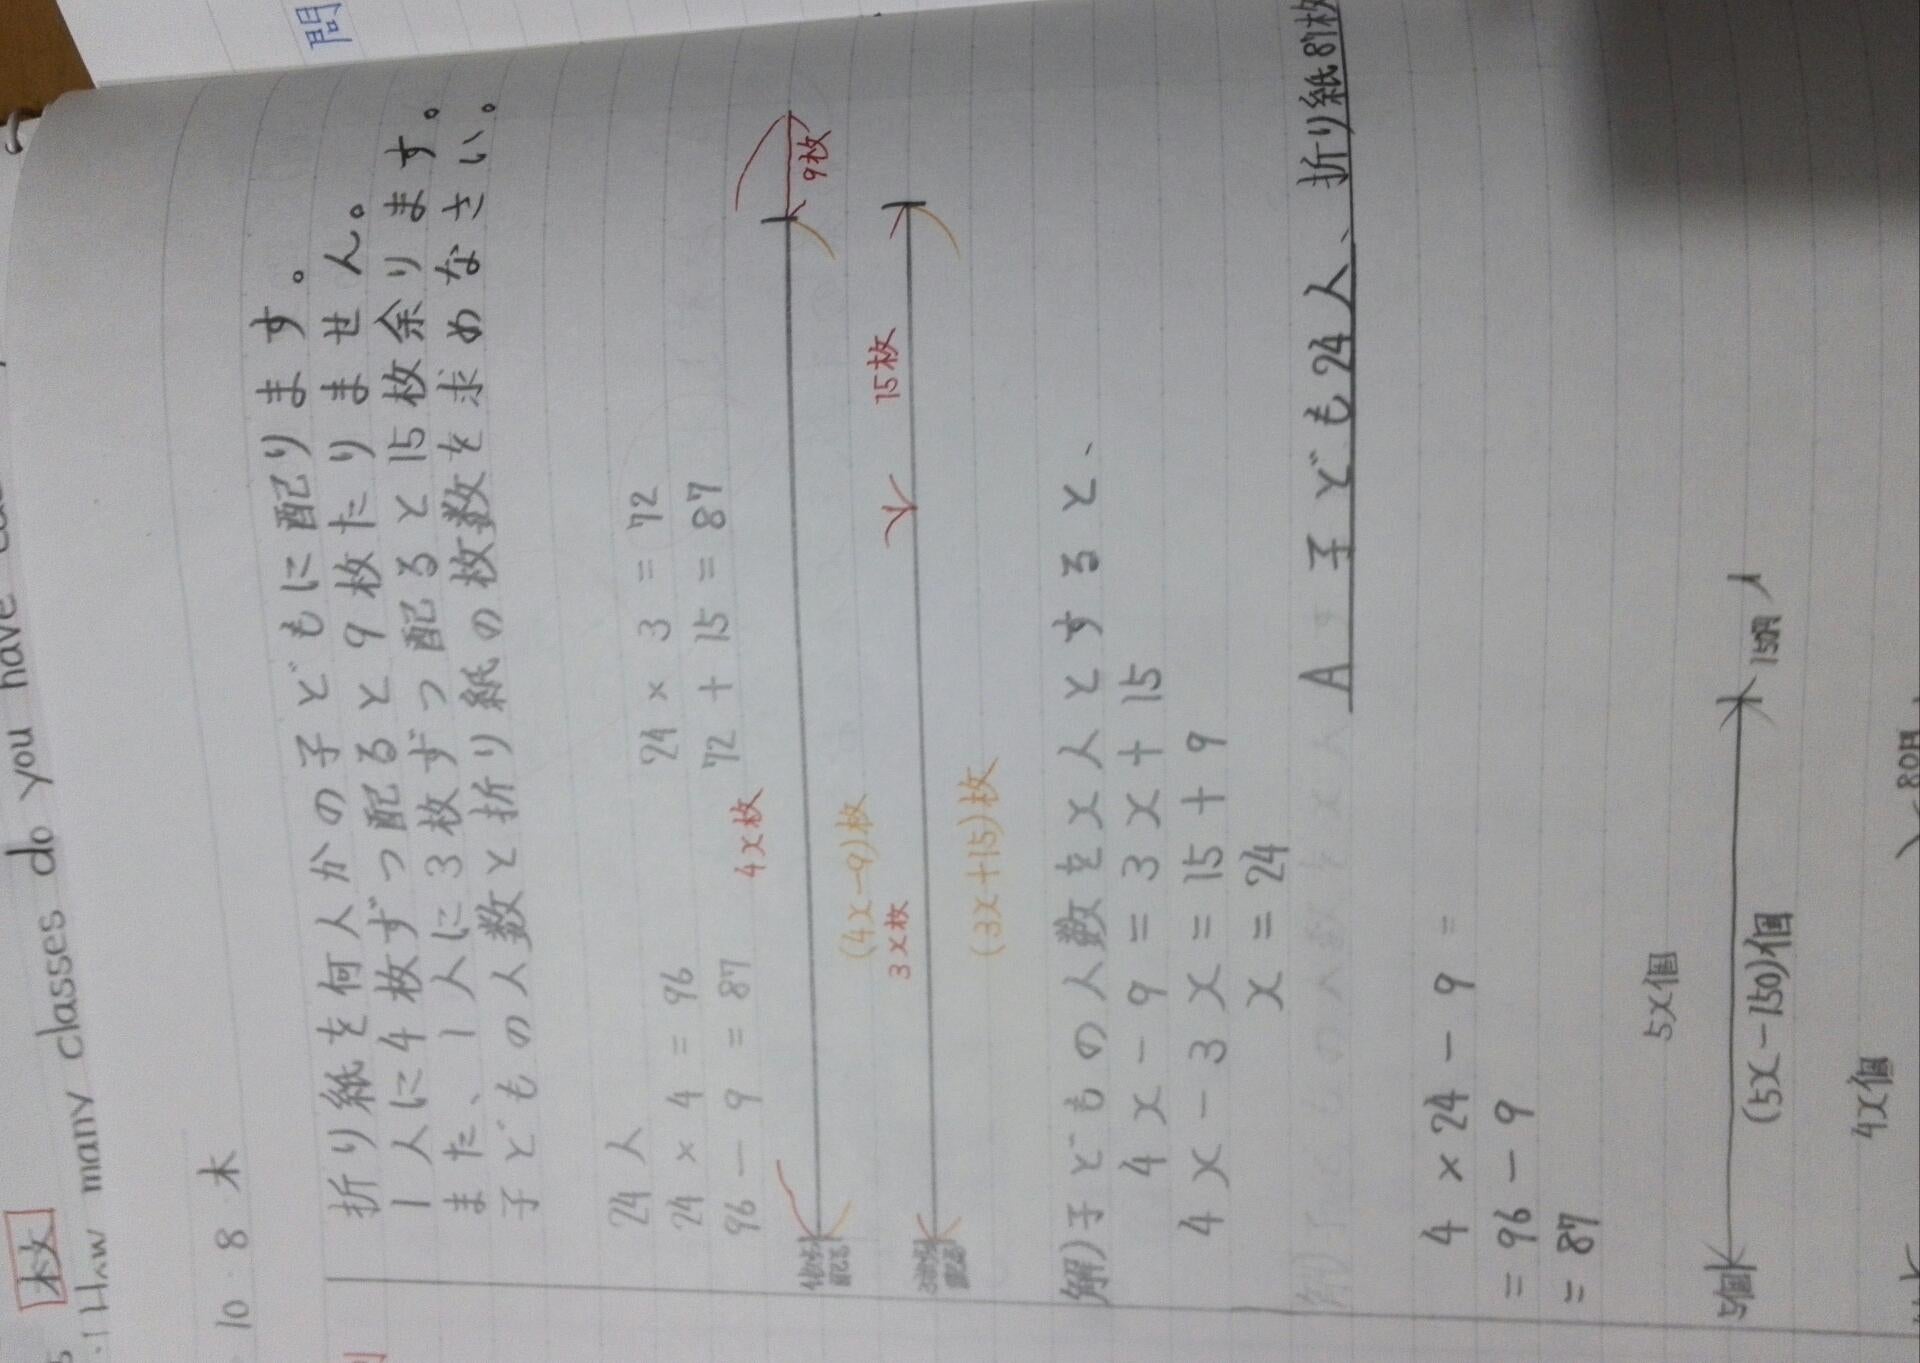 問
枚
How many classes do you have
10.8 木
折り紙を何人かの子どもに配ります。
1人に4枚ずつ配ると9枚たりません。
また、1人に3枚ずつ配ると15枚余ります。
子どもの人数と折り紙の枚数を求めなさい。
24人
24×4=96
96-9=87
24×3=72
72+15=87
4x枚
9枚
4枚ずつ配る
(4x-9)枚
3x枚
15枚
3枚ずつ配る
(3x+15)枚
解)子どもの人数をx人とすると、
4x-9=3x+15
4x-3x=15+9
x=24
A 子ども24人、折り紙87枚
4×24-9=
=96-9
=87
5x個
5個
150円
(5x-150)個
4x個
80円